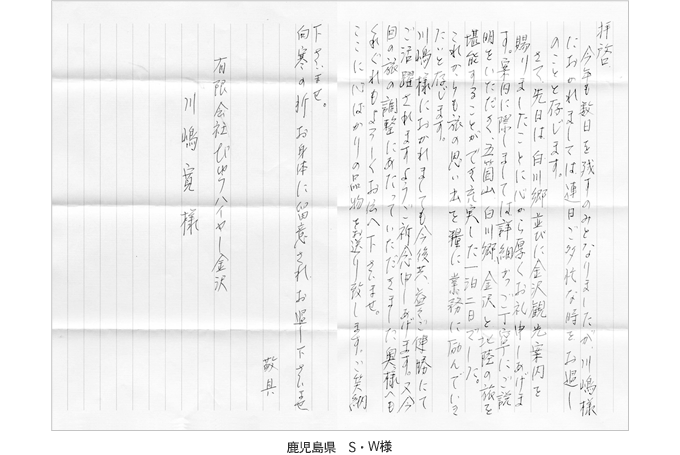 拝啓
今年も数日を残すのみとなりましたが川嶋様
におかれましては連日ご多忙な時をお過し
のことと存じます。
さて先日は白川郷並びに金沢観光案内を
賜りましたことに心から厚くお礼申しあげま
す。案内に際しましては詳細かつご丁寧なご説
明をいただき五箇山 白川郷 金沢と北陸の旅を
堪能することができ充実した一泊二日でした。
これからも旅の思い出を糧に業務に励んでいき
たいと存じます。
川嶋様におかれましても今後共益々ご健勝にて
ご活躍されますようご祈念申しあげます。又今
回の旅の調整にあたっていただきました奥様へも
くれぐれもよろしくお伝へ下さいませ。
ここに心ばかりの品物をお送り致します。ご笑納
下さいませ。
向寒の折お身体に留意されお過し下さいませ
敬具
有限会社びゆうハイヤー金沢
川嶋 寛 様
鹿児島県 S・W様